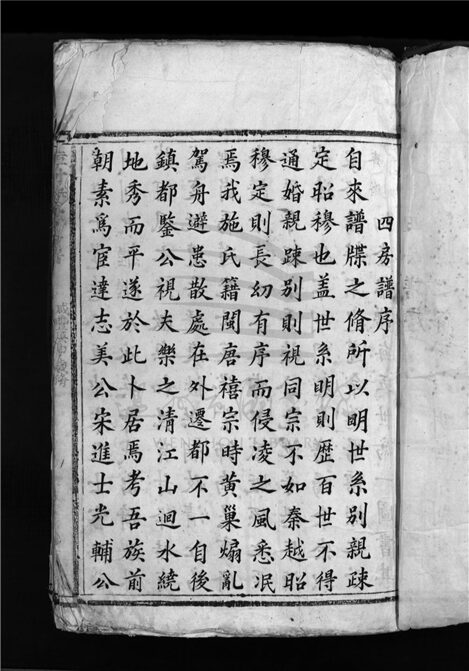 四房譜序
自來譜牒之脩所以明世系別親疎
定昭穆也盖世系明則歷百世不得
通婚親疎別則視同宗不如秦越昭
穆定則長幼有序而侵凌之風悉泯
焉我施氏籍閩唐禧宗時黄巢煽亂
駕舟避患散處在外遷都不一自後
鎮都鑒公視夫樂之清江山迴水繞
地秀而平遂於此卜居焉考吾族前
朝素爲宦達志美公宋進士光輔公